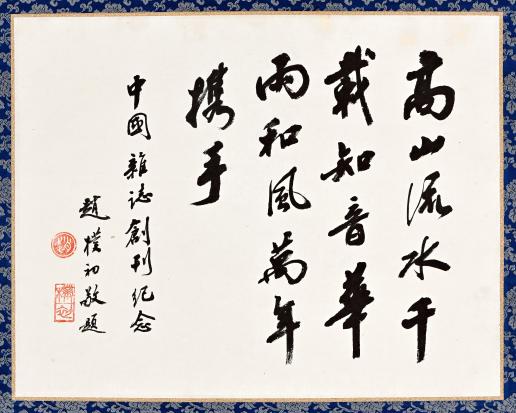 高山流水千
載知音華
雨和風萬年
攜手
中國雜誌創刊紀念
趙樸初敬題